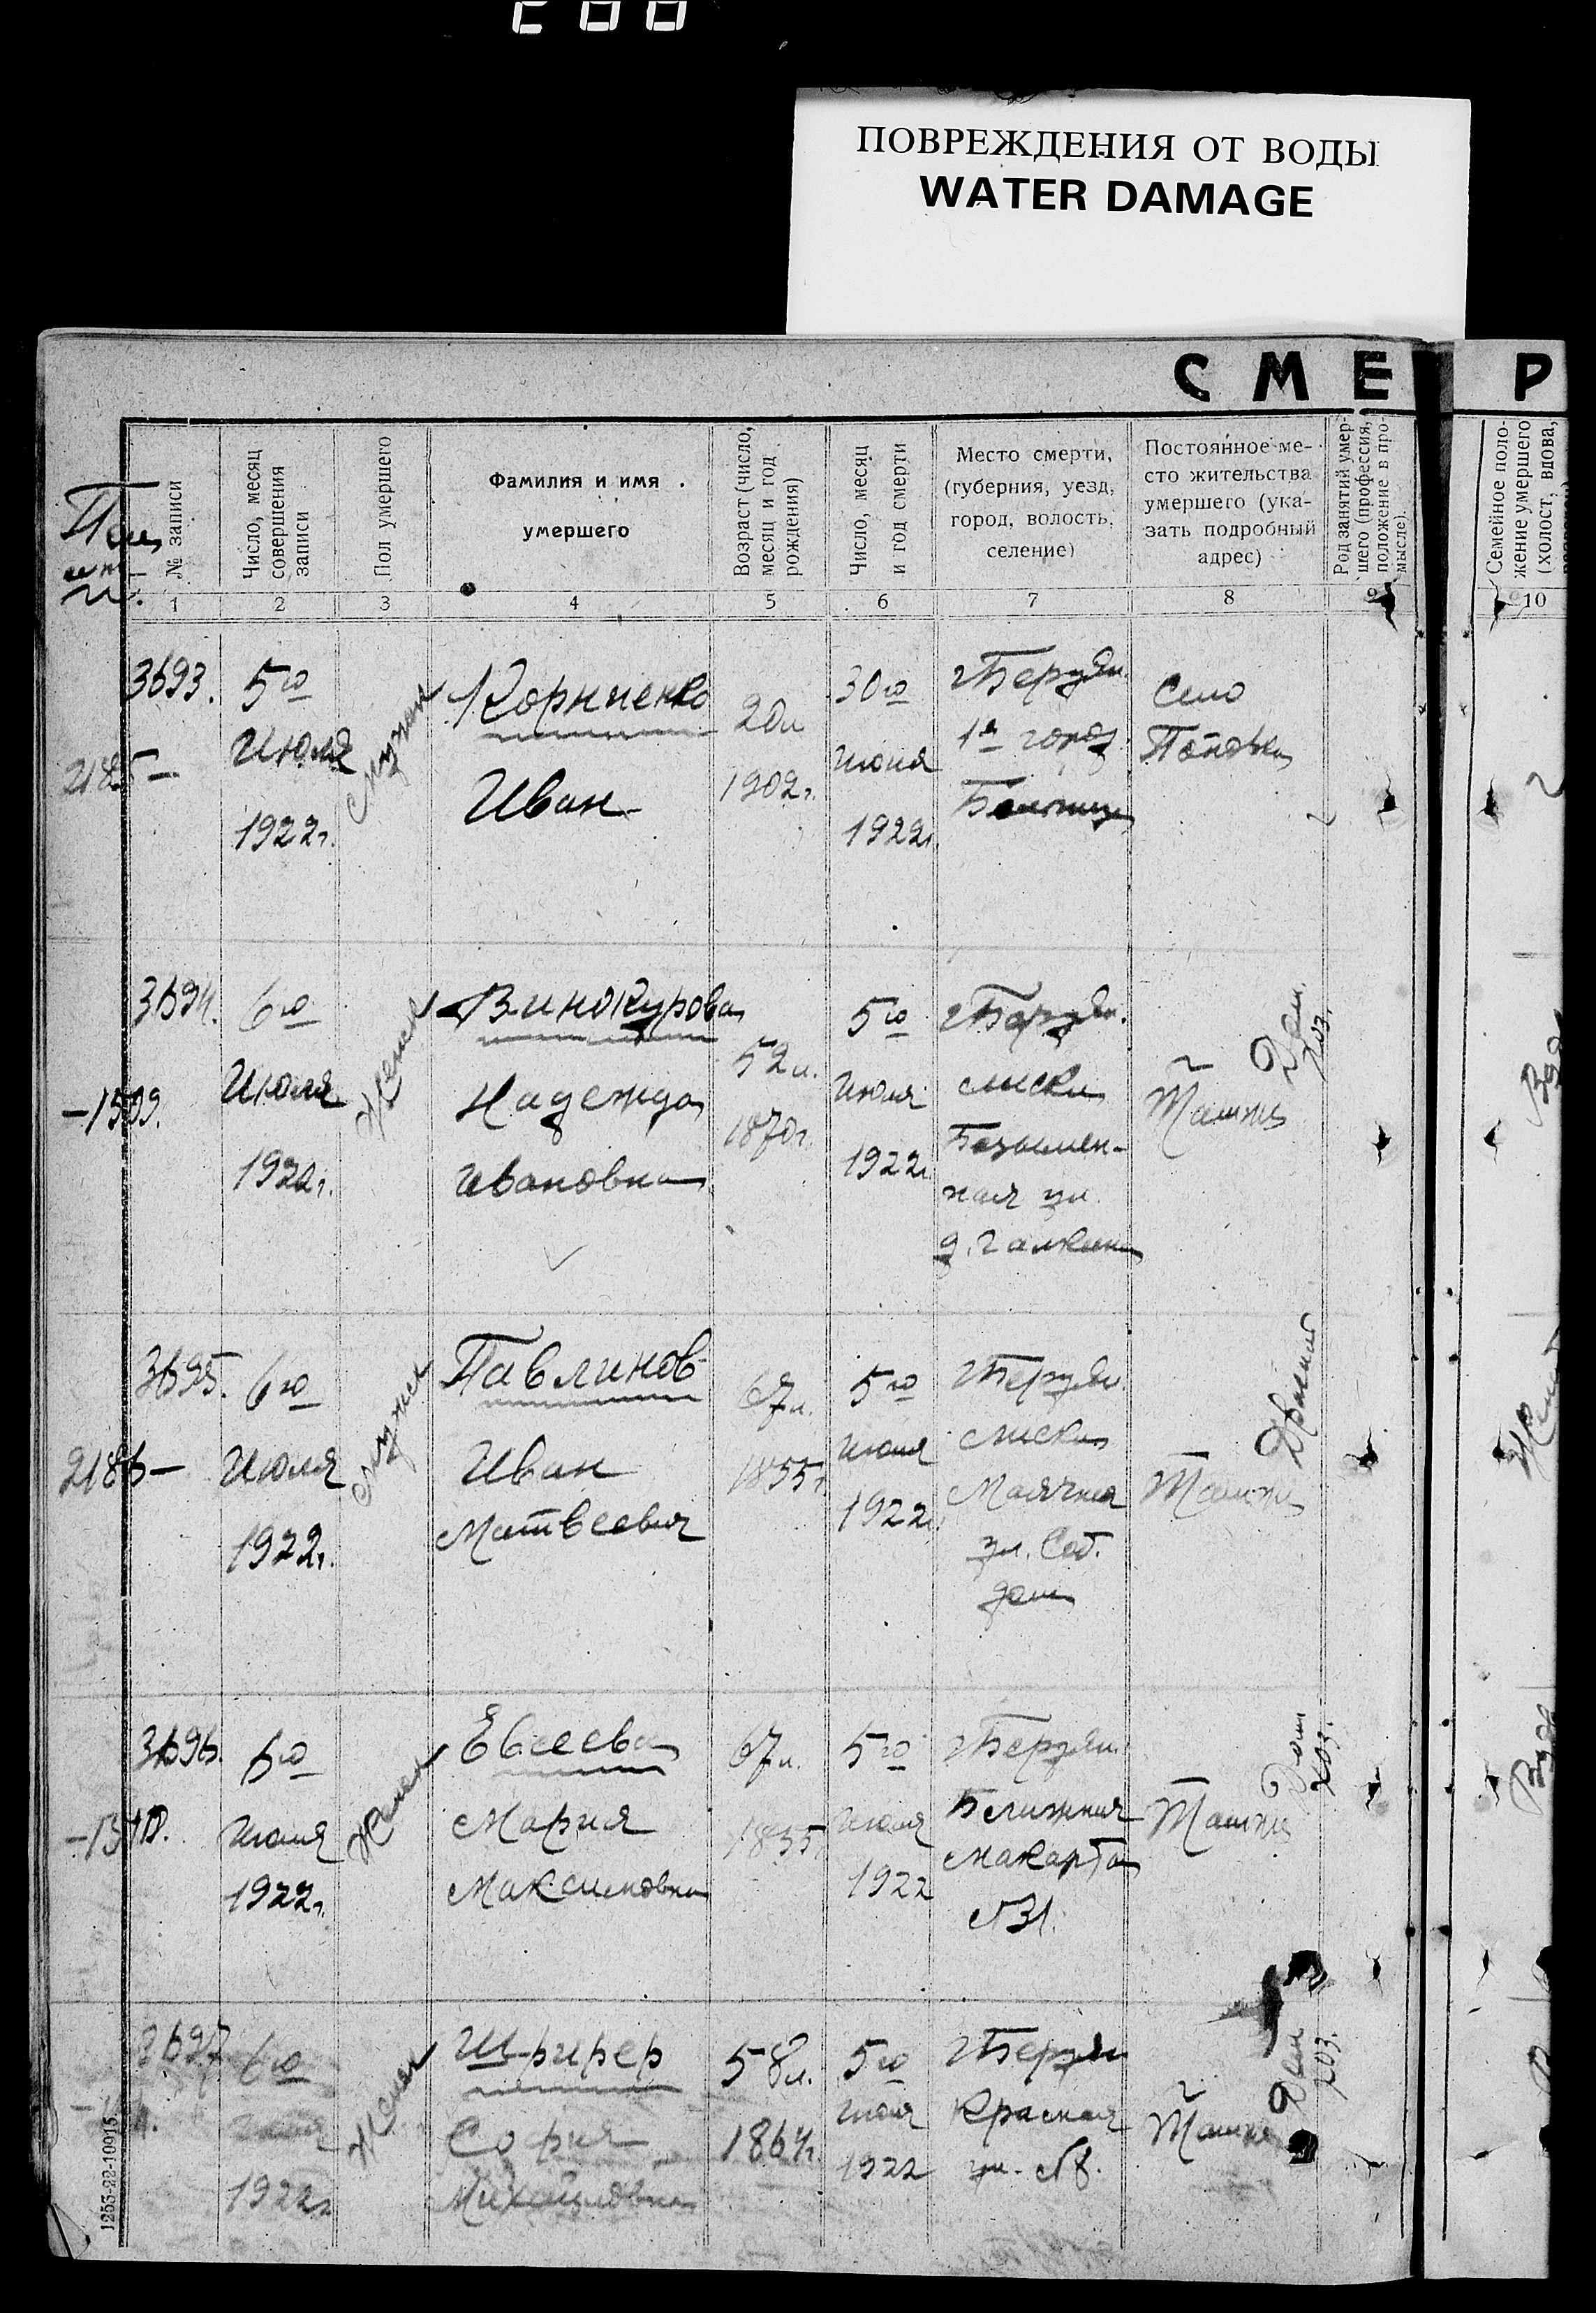 ПОВРЕЖДЕНИЯ ОТ ВОДЫ
WATER DAMAGE
СМЕ Р
№ записи
Число, месяц
совершения
записи
Пол умершего
Фамилия и имя
умершего
Возраст (число,
месяц и год
рождения)
Число, месяц
и год смерти
Место смерти,
(губерния, уезд,
город, волость,
селение)
Постоянное ме-
сто жительства
умершего (ука-
зать подробный
адрес)
Род занятий умер-
шего (профессия,
положение в про-
мысле).
Семейное поло-
жение умершего
(холост, вдова,
1 2 3 4 5 6 7 8 9 10
3693.
2185–
5го
Июля
1922г.
мужск
Корниенко
Иван
20л
1902г.
30го
июня
1922г.
г Бердян.
1я город.
Больница
Село
Поповка
3694.
–1509.
6го
Июля
1922г.
Женск
Винокурова
Надежда
Ивановна
52л.
1870г.
5го
Июля
1922г.
г Бердян.
лиски
Безымен-
ная ул.
д. Галкина
Там же
Дом.
хоз.
3695.
2186–
6го
Июля
1922г.
мужск
Павлинов
Иван
Матвеевич
67л.
1855г
5го
июля
1922г.
г Бердян.
лиски
Маячная
ул. Соб.
дом
Там же
3696.
–1510.
6го
Июля
1922г.
Женск
Евсеева
Мария
Максимовна
67л.
1855
5го
Июля
1922
г Бердян.
Ближния
макорта
№31.
Там же
Дом
хоз.
3697
6го
Июля
1922г
Женск
София
Михайловна
58л.
1864г.
5го
июля
1922
г Бердян
Красная
ул. №8.
Там же
Дом
хоз.
1255-22-10915.